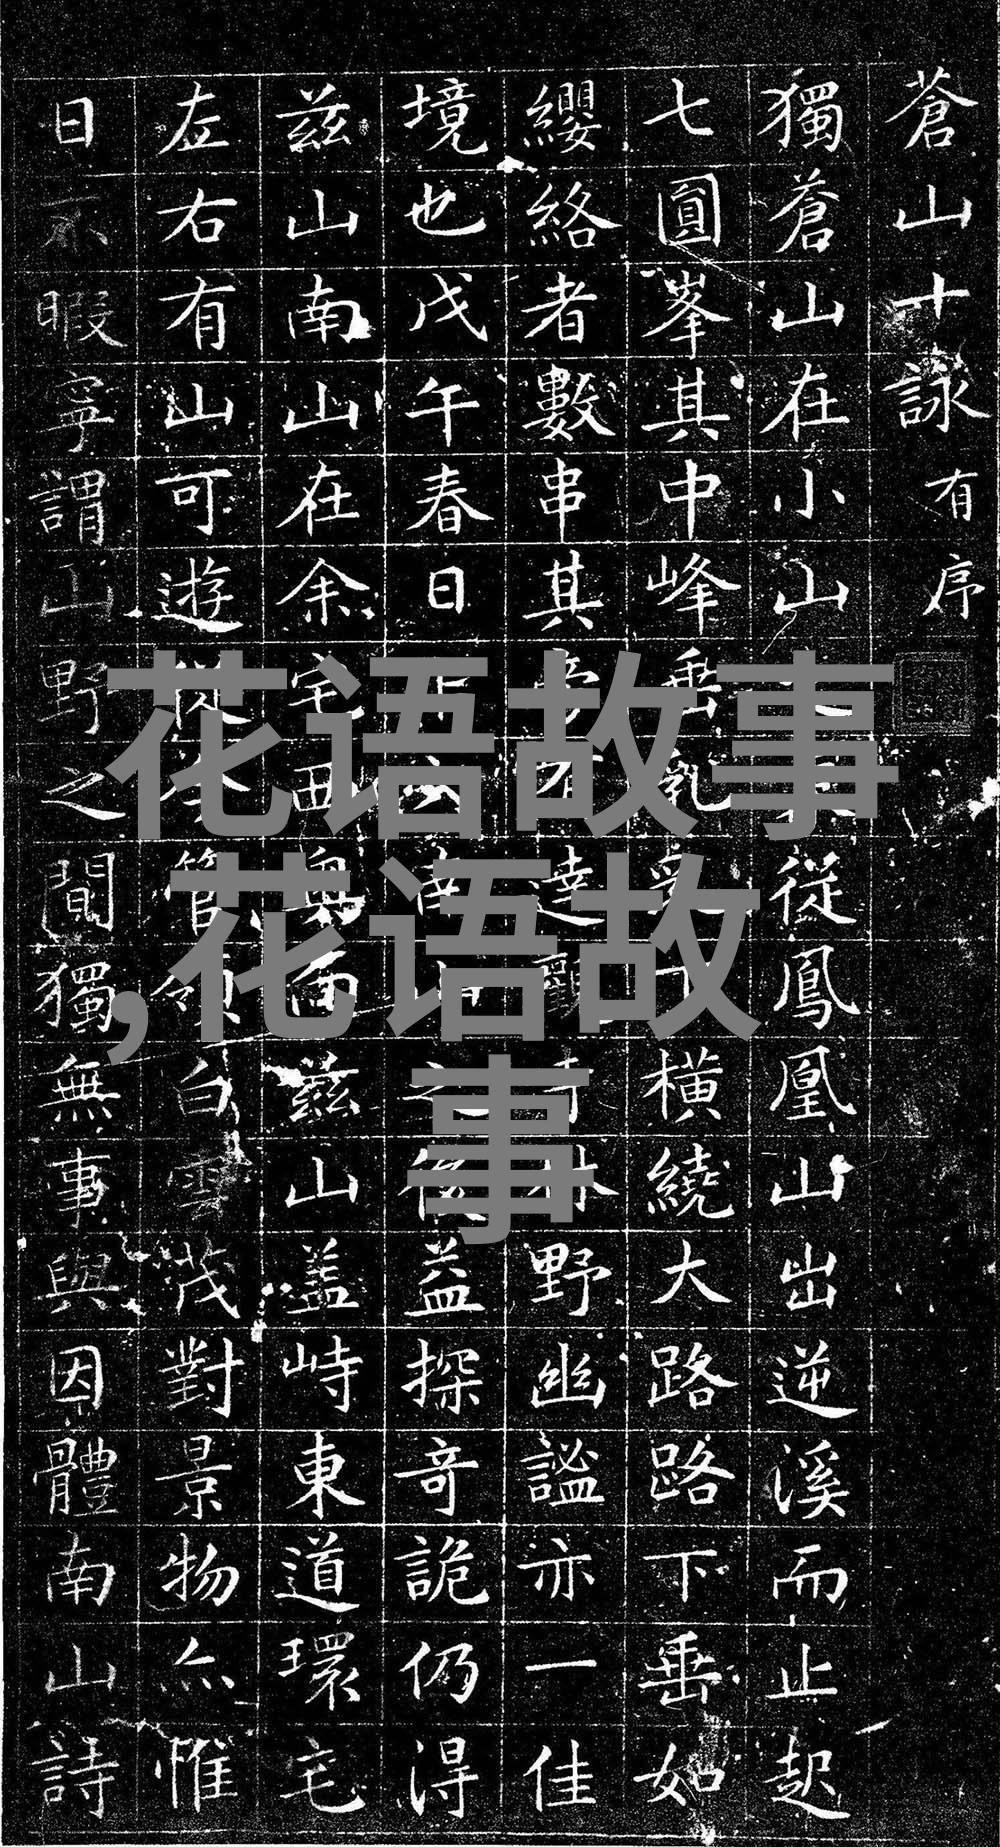 蒼山十詠有序
獨蒼山在小山從鳳凰山出逆溪而止起
七圓峯其中峰垂乳橫繞大路路下垂如
纓絡者數串其旁不遠觀于林野幽謐亦一佳
境也戊午春日南之後益探奇詭仍得
茲山南山在余宅西奥面茲山盖峙東道環宅
左右有山可遊從今管領白雲茂對景物亦惟
日不暇寧謂山野之間獨無事與因體南山詩
花语故事
,花语故
事